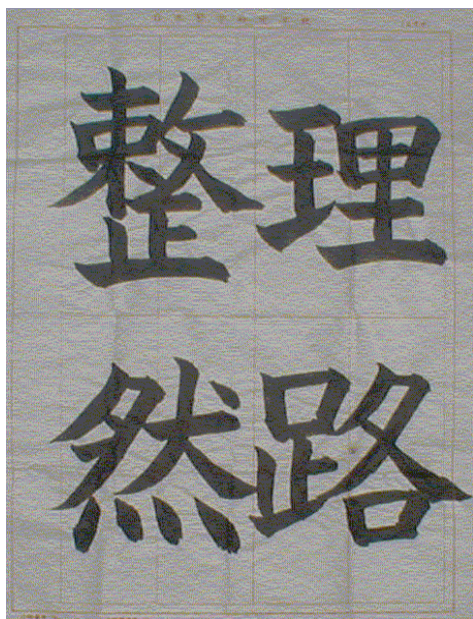 理路
整然